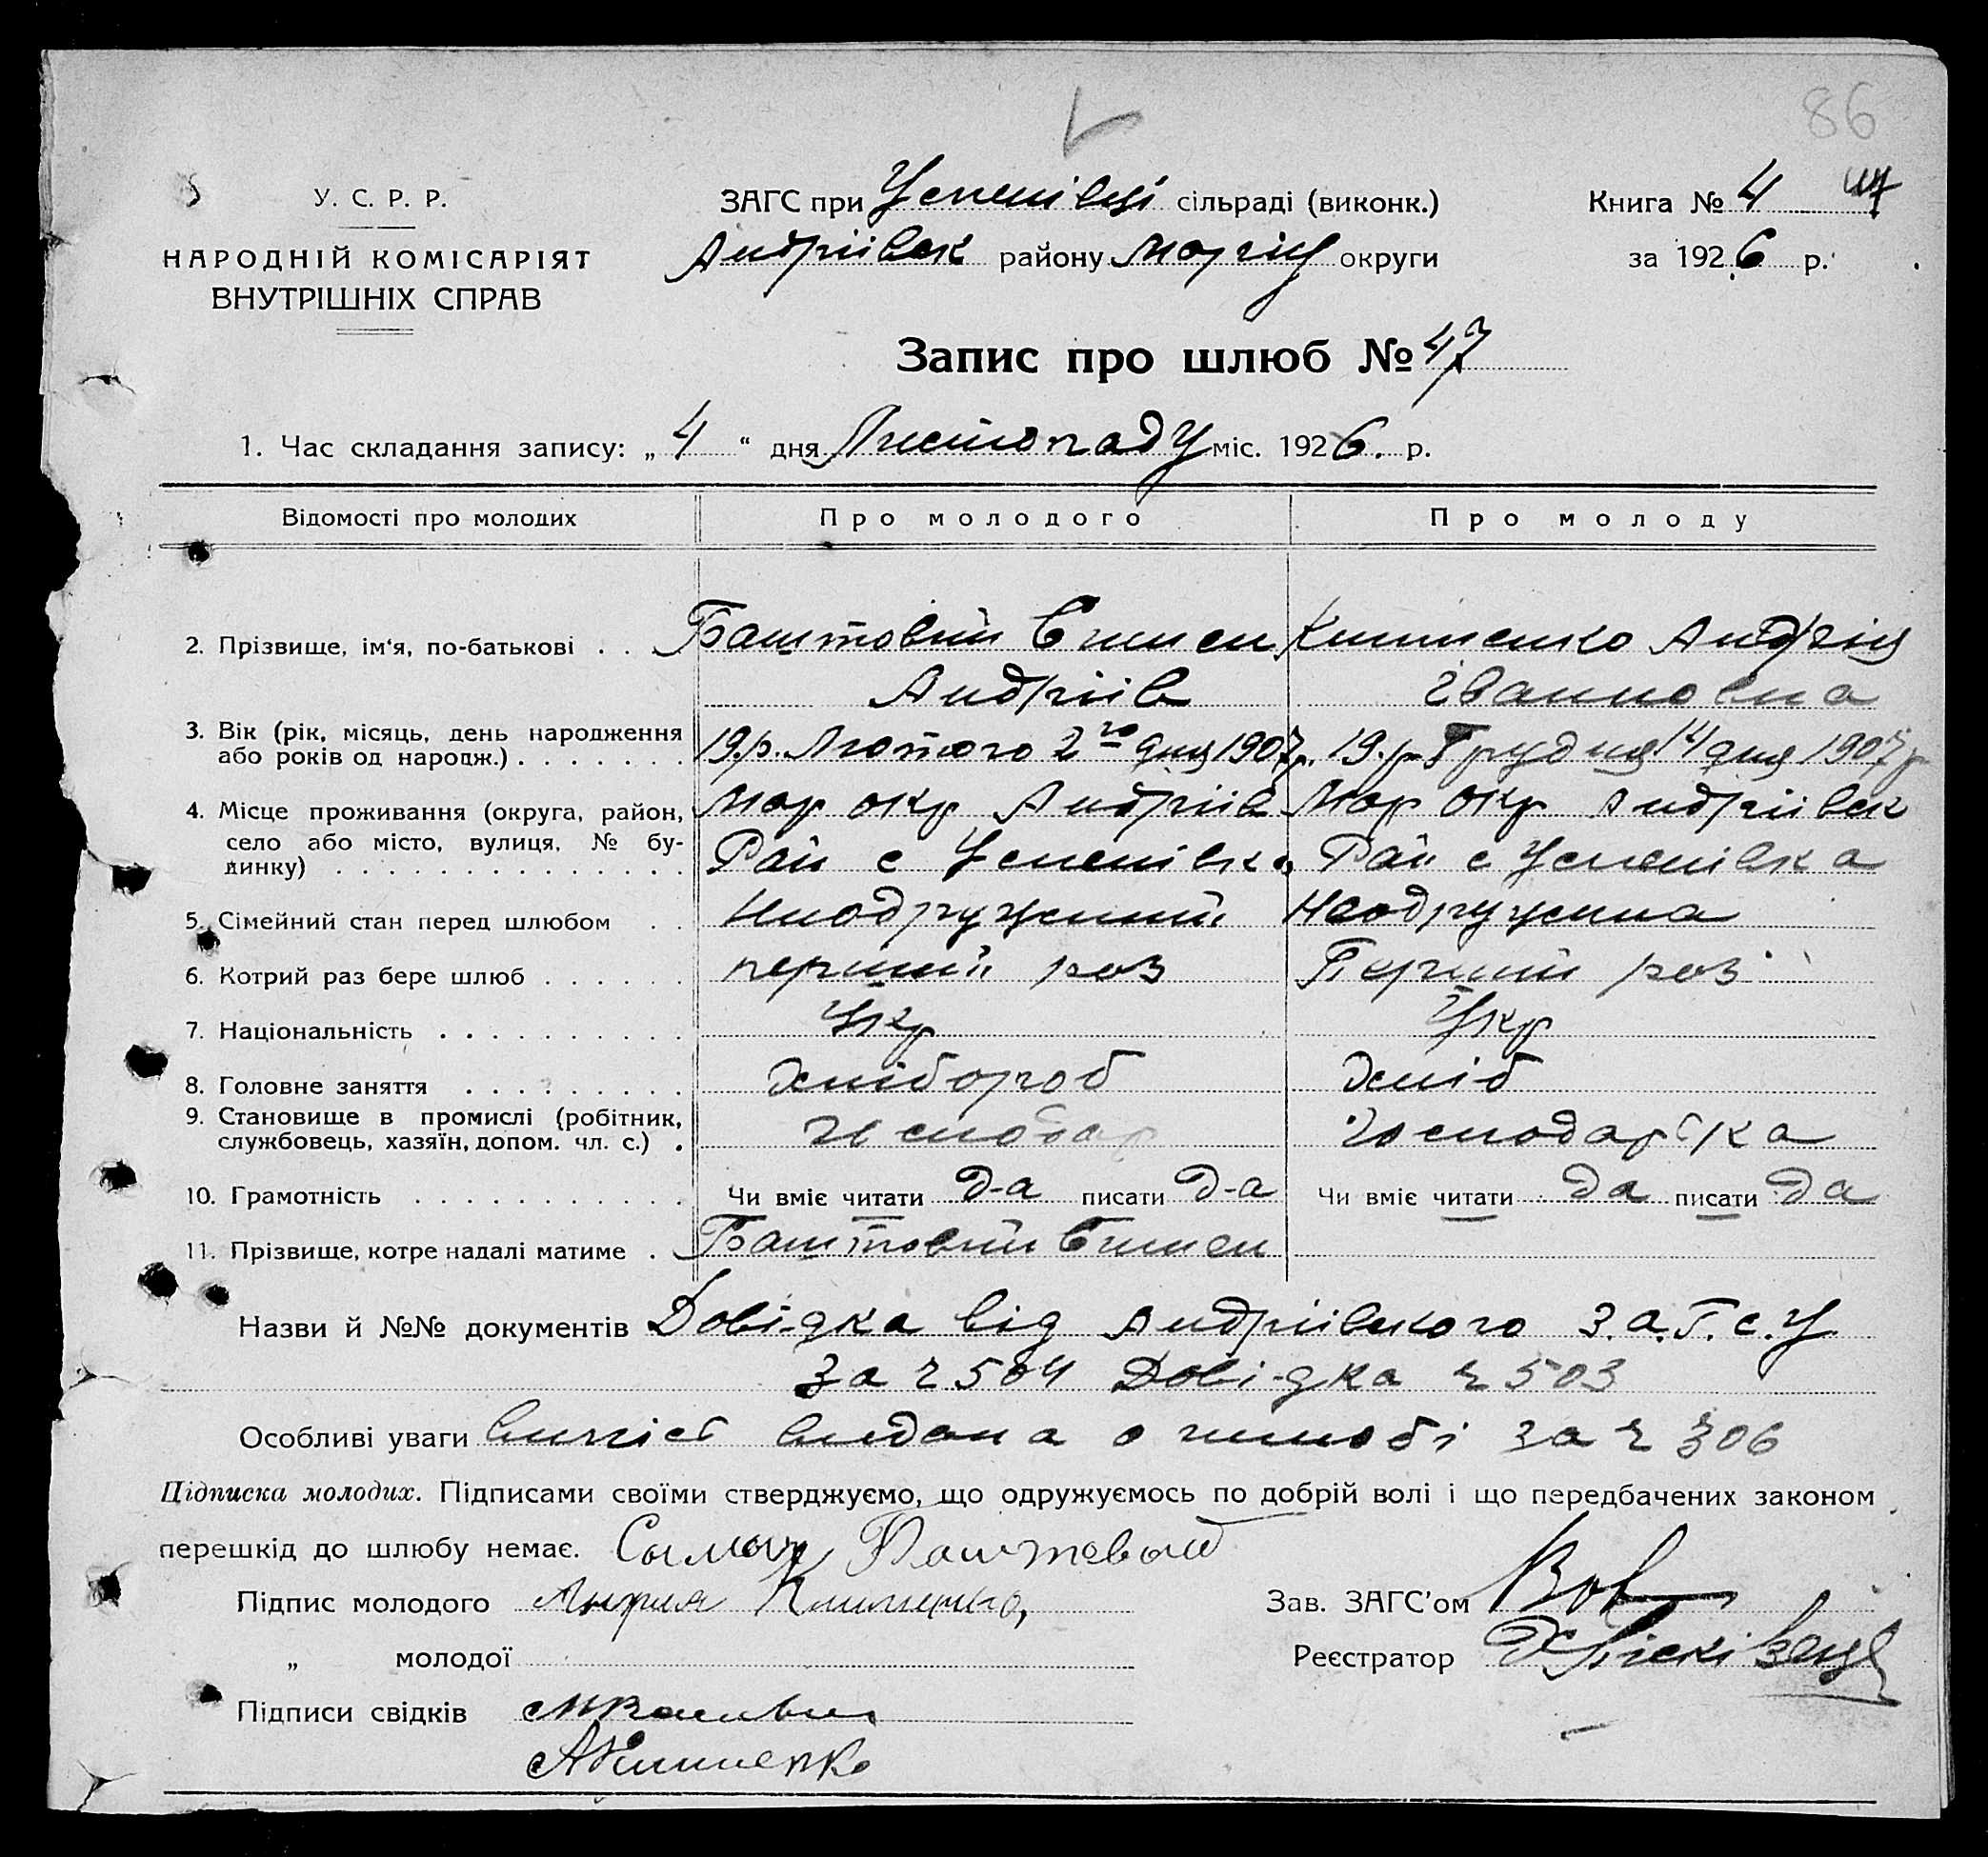 86
У. С. Р. Р.
НАРОДНІЙ КОМІСАРІЯТ
ВНУТРІШНІХ СПРАВ
ЗАГС при Успенівці сільраді (виконк.)
Андріівск району Маріу округи
Книга № 4
за 1926 р.
Запис про шлюб № 47
1. Час складання запису: „4“ дня Листопаду міс. 1926. р.
Відомості про молодих
Про молодого
Про молоду
2. Прізвище, ім'я, по-батькові . . .
Баштовий Симен
Андріів
Клименко
Іванновна
3. Вік (рік, місяць, день народження
або років од народж.) . . . . . . .
19.р. Лютого 2го дня 1907р.
19.р Грудня 14 дня 1907р
4. Місце проживання (округа, район,
село або місто, вулиця, № бу-
динку) . . . . . . . . . . . . . .
Мар окр Андріів
Рай с Успенівка
Мар окр Андріівск
Рай с Успенівка
5. Сімейний стан перед шлюбом . .
Неодружений
Неодружена
6. Котрий раз бере шлюб . . . . . .
перший раз
Перший раз
7. Національність . . . . . . . . . .
Укр
Укр
8. Головне заняття . . . . . . . . .
Хлібороб
Хліб
9. Становище в промислі (робітник,
службовець, хазяїн, допом. чл. с.) .
Господар
Господарка
10. Грамотність . . . . . . . . . . .
Чи вміє читати Д-а писати Д-а
Чи вміє читати Да писати Да
11. Прізвище, котре надалі матиме .
Баштовий Симен
Назви й №№ документів Довідка від Андріівского З.а.Г.с.у
за № 504 Довідка № 503
Особливі уваги випіс видана о шлюбі за № 306
Підписка молодих. Підписами своїми стверджуємо, що одружуємось по добрій волі і що передбачених законом
перешкід до шлюбу немає. Баштовый
Підпис молодого Клименко,
„ молодої
Зав. ЗАГС'ом
Реєстратор
Підписи свідків
АКлименко